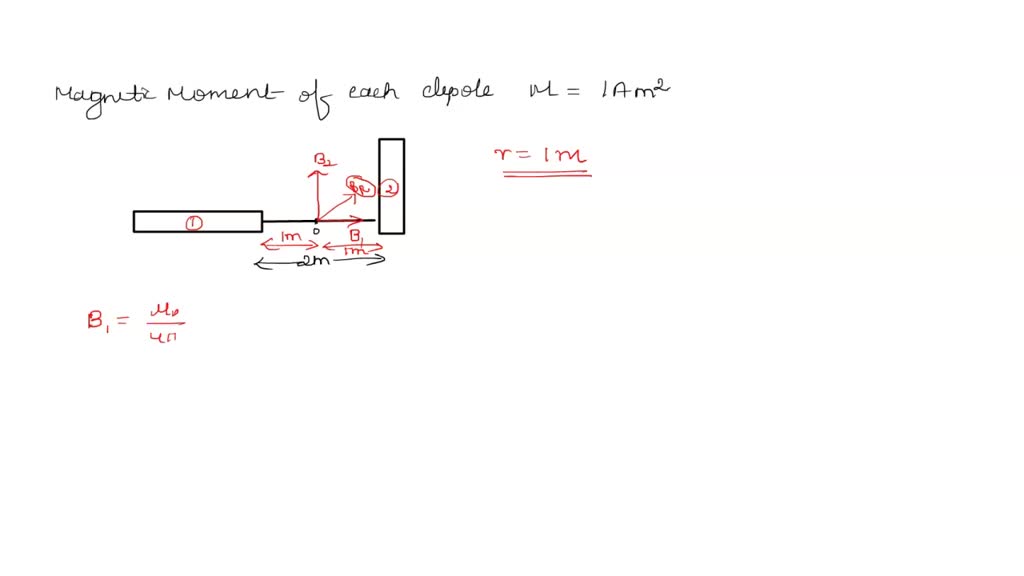 Magnetic Moment of each dipole M = 1Am²
r = 1m
B₂
BR
②
①
O
1m
B₁
1m
2m
B₁ = μ₀
4π